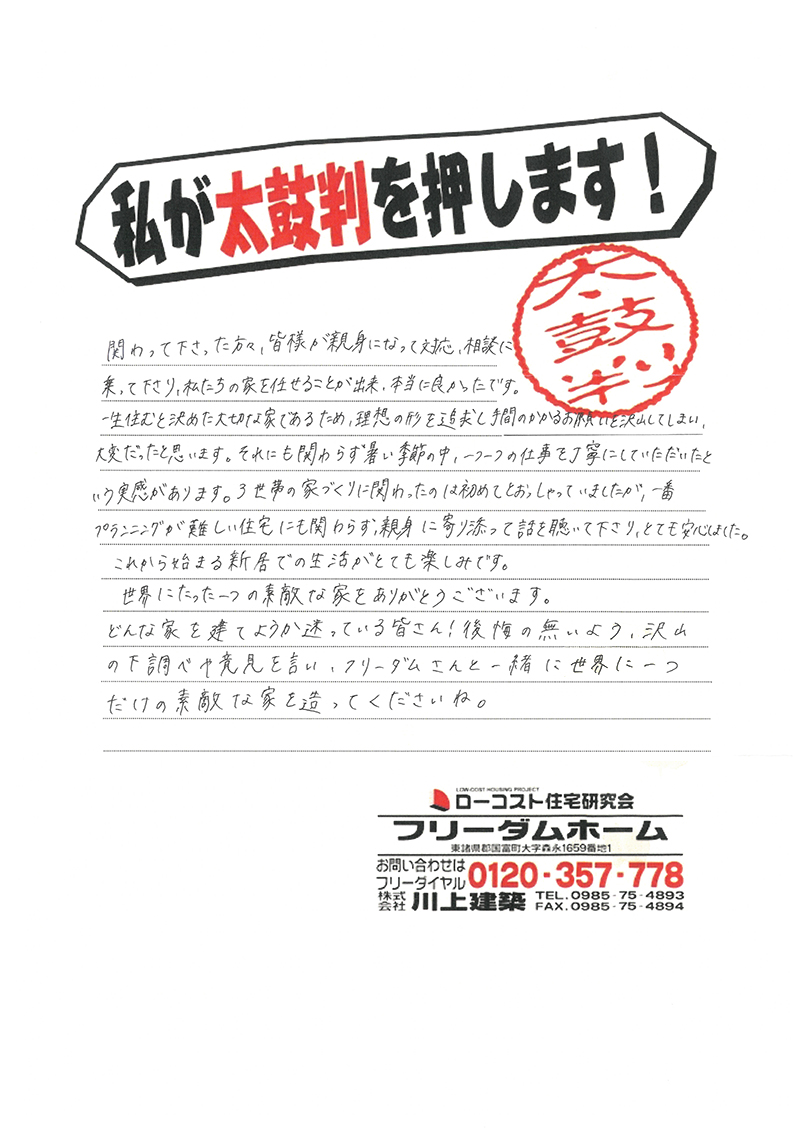 私が太鼓判を押します！
太鼓判
関わって下さった方々、皆様が親身になって対応、相談に
乗って下さり、私たちの家を任せることが出来、本当に良かったです。
一生住むと決めた大切な家であるため、理想の形を追求し手間のかかるお願いを沢山してしまい、
大変だったと思います。それにも関わらず暑い季節の中、一つ一つの仕事を丁寧にしていただいたと
いう実感があります。3世帯の家づくりに関わったのは初めてとおっしゃっていましたが、一番
プランニングが難しい住宅にも関わらず、親身に寄り添って話を聴いて下さり、とても安心しました。
これから始まる新居での生活がとても楽しみです。
世界にたった一つの素敵な家をありがとうございます。
どんな家を建てようか迷っている皆さん！後悔の無いよう、沢山
の下調べや意見を言い、フリーダムさんと一緒に世界に一つ
だけの素敵な家を造ってくださいね。
LOW-COST HOUSING PROJECT
ローコスト住宅研究会
フリーダムホーム
東諸県郡国富町大字森永1659番地1
お問い合わせは フリーダイヤル 0120-357-778
株式会社 川上建築 TEL.0985-75-4893
FAX.0985-75-4894